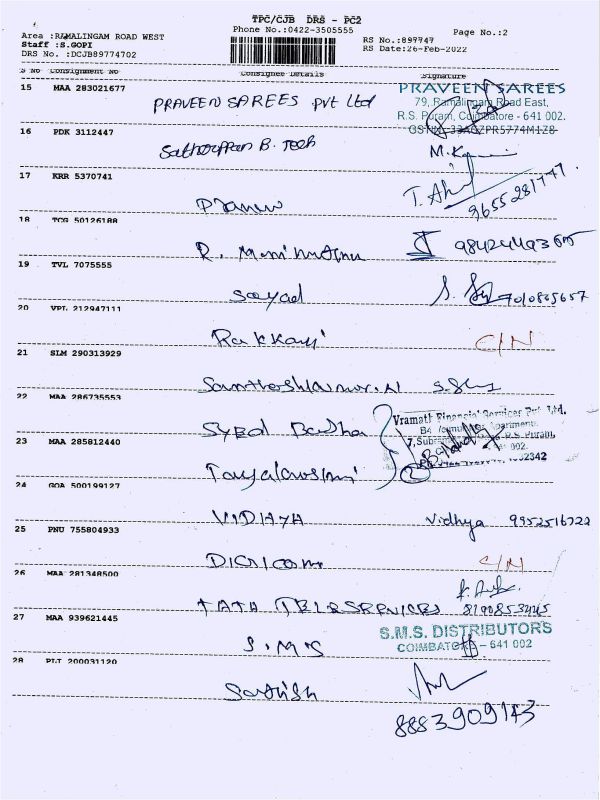 TPC/CJB DRS - PC2
Area :RAMALINGAM ROAD WEST Phone No.:0422-3505555 Page No.:2
Staff :S.GOPI RS No.:897747
DRS No. :DCJB89774702 RS Date:26-Feb-2022
S No Consignment No Consignee Details Signature
15 MAA 283021677 PRAVEEN SAREES Pvt Ltd
PRAVEEN SAREES
79, Ramalingam Road East,
R.S. Puram, Coimbatore - 641 002.
GSTIN 33AGZPR5774M1Z8
16 PDK 3112447 B. Tech
17 KRR 5370741
9655281747.
18 TCG 50126188
R.
19 TVL 7075555 Sayad
7010865657
20 VPL 212947111 Rakkayi C/N
21 SLM 290313929 Santhoshkumar.N
22 MAA 286735553 Syed Badha
Vramath Financial Services Pvt. Ltd.
23 MAA 285812440
24 GOA 500199127 VIDHYA Vidhya 9952516722
25 PNU 755804933 DIGICOM C/N
26 MAA 281348500 TATA TELESERVICES
27 MAA 939621445 S.M.S
S.M.S. DISTRIBUTORS
COIMBATORE - 641 002
28 PLT 200031120 Sathish
8883909143